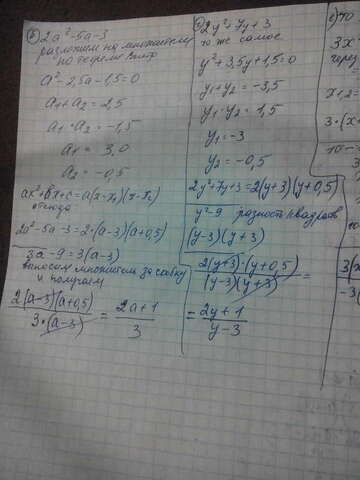 б) 2a² - 5a - 3
разложим на множители
по теореме Виета
a² - 2,5a - 1,5 = 0
a₁ + a₂ = 2,5
a₁ · a₂ = -1,5
a₁ = 3,0
a₂ = -0,5
ax² + bx + c = a(x - x₁)(x - x₂)
отсюда
2a² - 5a - 3 = 2·(a - 3)(a + 0,5)
3a - 9 = 3(a - 3)
выносим множитель за скобку
и получаем
2(a - 3)(a + 0,5)
3·(a - 3)
= 2a + 1
3
2y² + 7y + 3
то же самое
y² + 3,5y + 1,5 = 0
y₁ + y₂ = -3,5
y₁ · y₂ = 1,5
y₁ = -3
y₂ = -0,5
2y² + 7y + 3 = 2(y + 3)(y + 0,5)
y² - 9 разность квадратов
(y - 3)(y + 3)
2(y + 3)·(y + 0,5)
(y - 3)(y + 3)
=
= 2y + 1
y - 3
3x
через
x₁,₂ =
3·(x
10 -
3(x
-3(